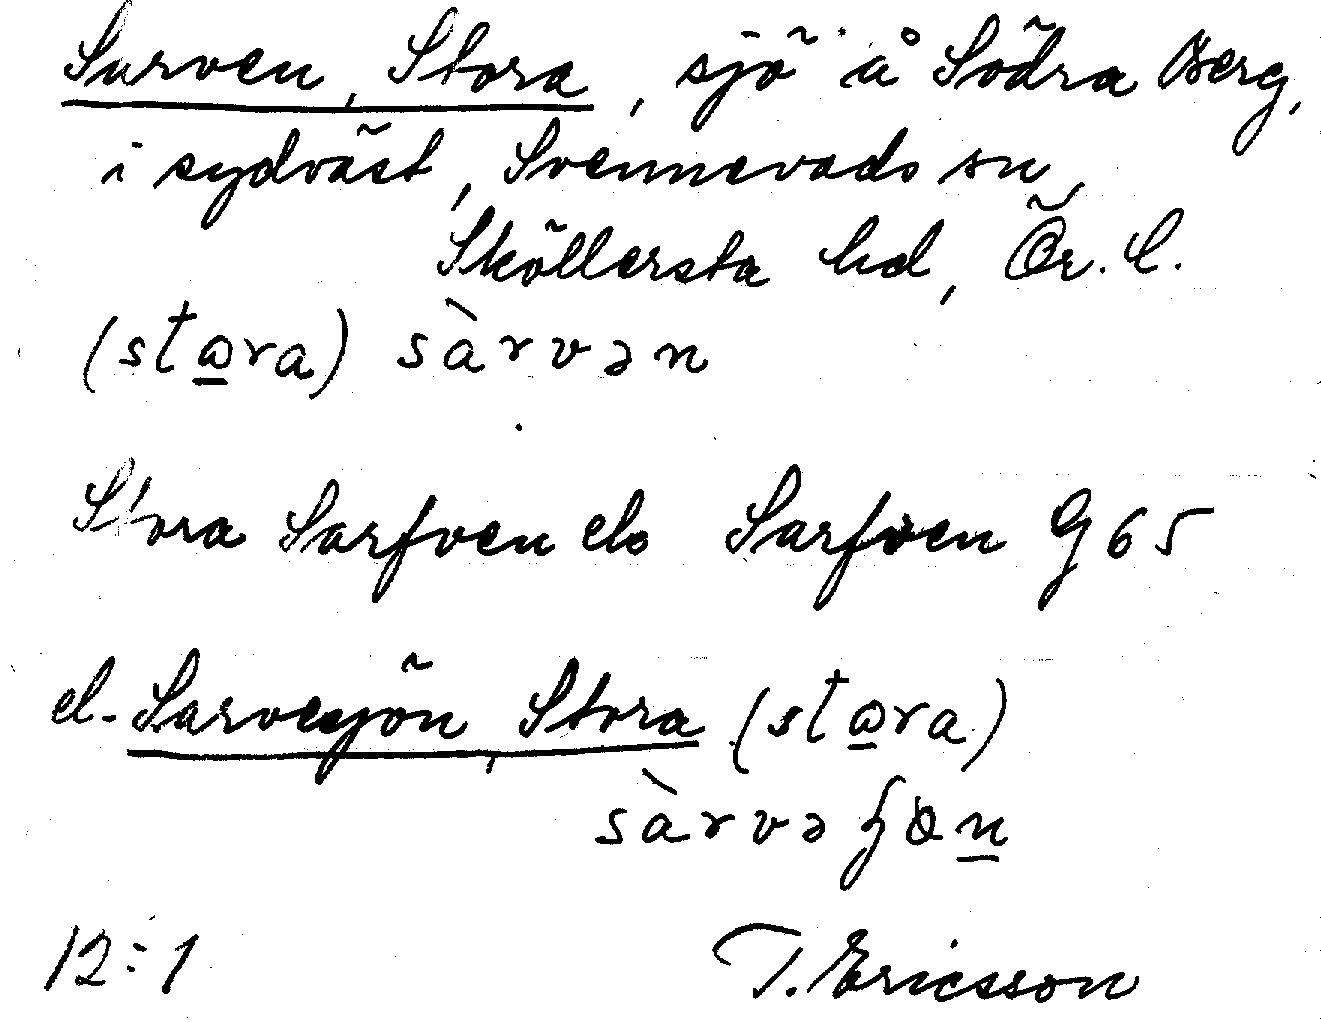 Sarven, Stora, sjö å Södra Berg,
i sydväst, Svennevads sn,
Sköllersta hd, Ör. l.
(stɷra) sàrvən
Stora Sarfven els Sarfven G 65
el. Sarvesjön, Stora (stɷra)
sàrvə
12:1 T. Ericsson